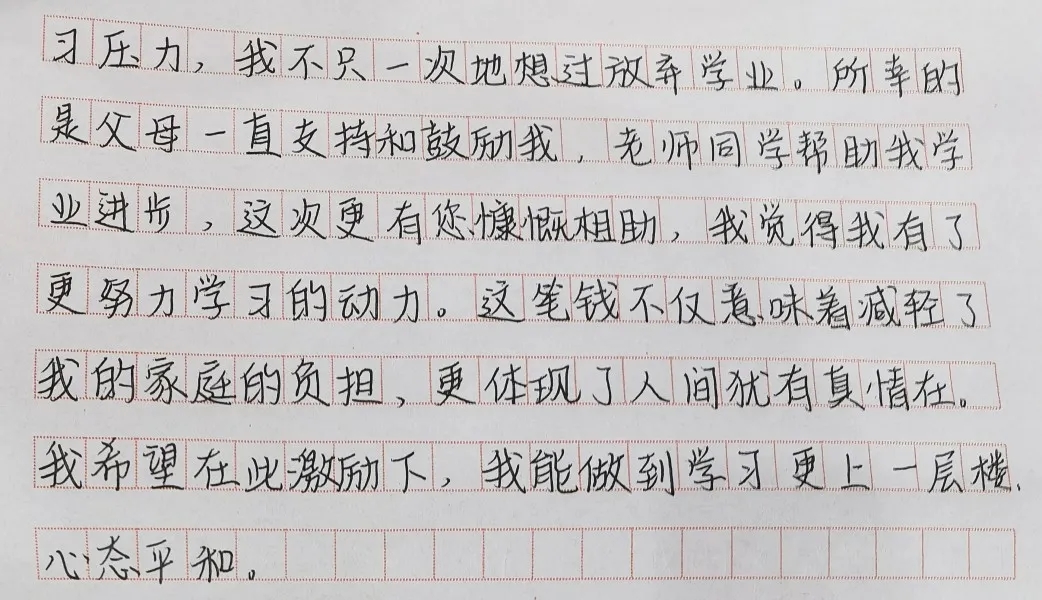 习压力，我不只一次地想过放弃学业。所幸的
是父母一直支持和鼓励我，老师同学帮助我学
业进步，这次更有您慷慨相助，我觉得我有了
更努力学习的动力。这笔钱不仅意味着减轻了
我的家庭的负担，更体现了人间犹有真情在。
我希望在此激励下，我能做到学习更上一层楼、
心态平和。